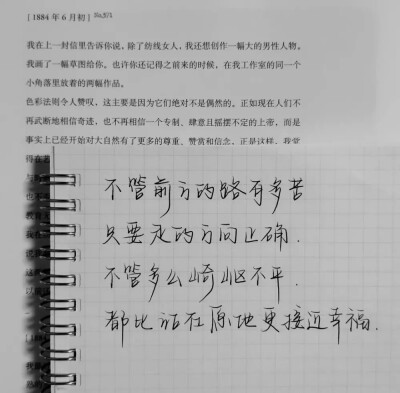 [ 1884 年 6 月初 ] No.371
我在上一封信里告诉你说，除了纺线女人，我还想创作一幅大的男性人物。
我画了一幅草图给你。也许你还记得之前来的时候，在我工作室的同一个
小角落里放着的两幅作品。
色彩法则令人赞叹，这主要是因为它们绝对不是偶然的。正如现在人们不
再武断地相信奇迹，也不再相信一个专制、肆意且摇摆不定的上帝，而是
事实上已经开始对大自然有了更多的尊重、赞赏和信念，正是这样，我觉
得在
不管前方的路有多苦
只要走的方向正确.
不管多么崎岖不平.
都比站在原地更接近幸福.